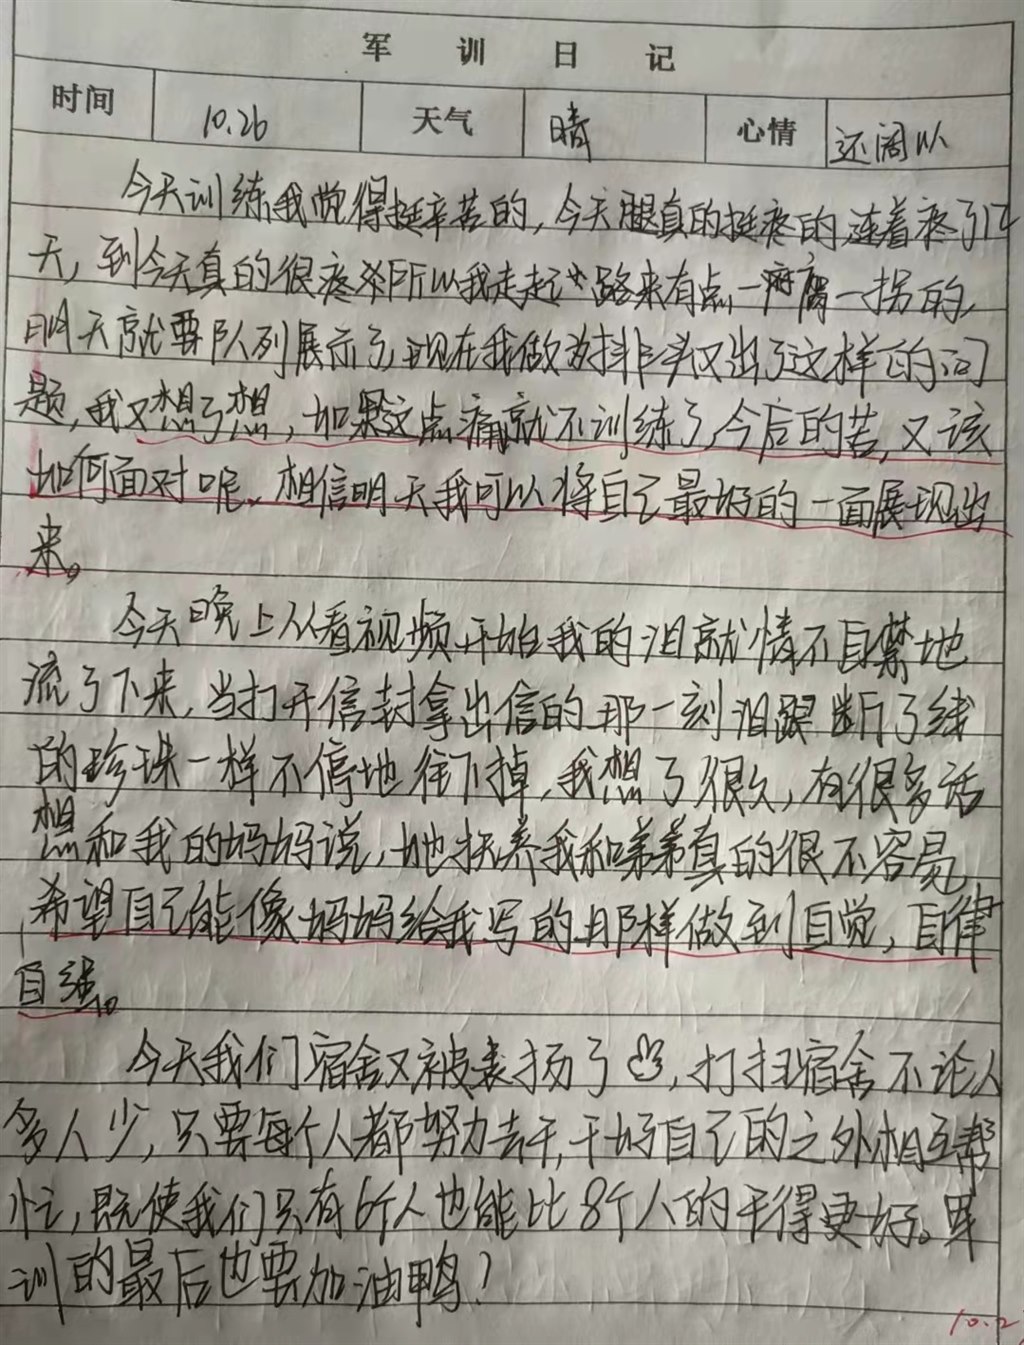 军训日记
时间 10.26 天气 晴 心情 还阔以
今天训练我觉得挺辛苦的,今天腿真的挺疼的,连着疼了几
天,到今天真的很疼,所以我走起路来有点一瘸一拐的,
明天就要队列展示了,现在我做为排头又出了这样的问
题,我又想了想,如果这点痛就不训练了,今后的苦,又该
如何面对呢。相信明天我可以将自己最好的一面展现出
来。
今天晚上从看视频开始我的泪就情不自禁地
流了下来,当打开信封拿出信的那一刻泪跟断了线
的珍珠一样不停地往下掉,我想了很久,有很多话
想和我的妈妈说,她抚养我和弟弟真的很不容易,
希望自己能像妈妈给我写的那样做到自觉,自律
自强。
今天我们宿舍又被表扬了,打扫宿舍不论人
多人少,只要每个人都努力去干,干好自己的之外相互帮
忙,既使我们只有6个人也能比8个人的干得更好。军
训的最后也要加油鸭!
10.2